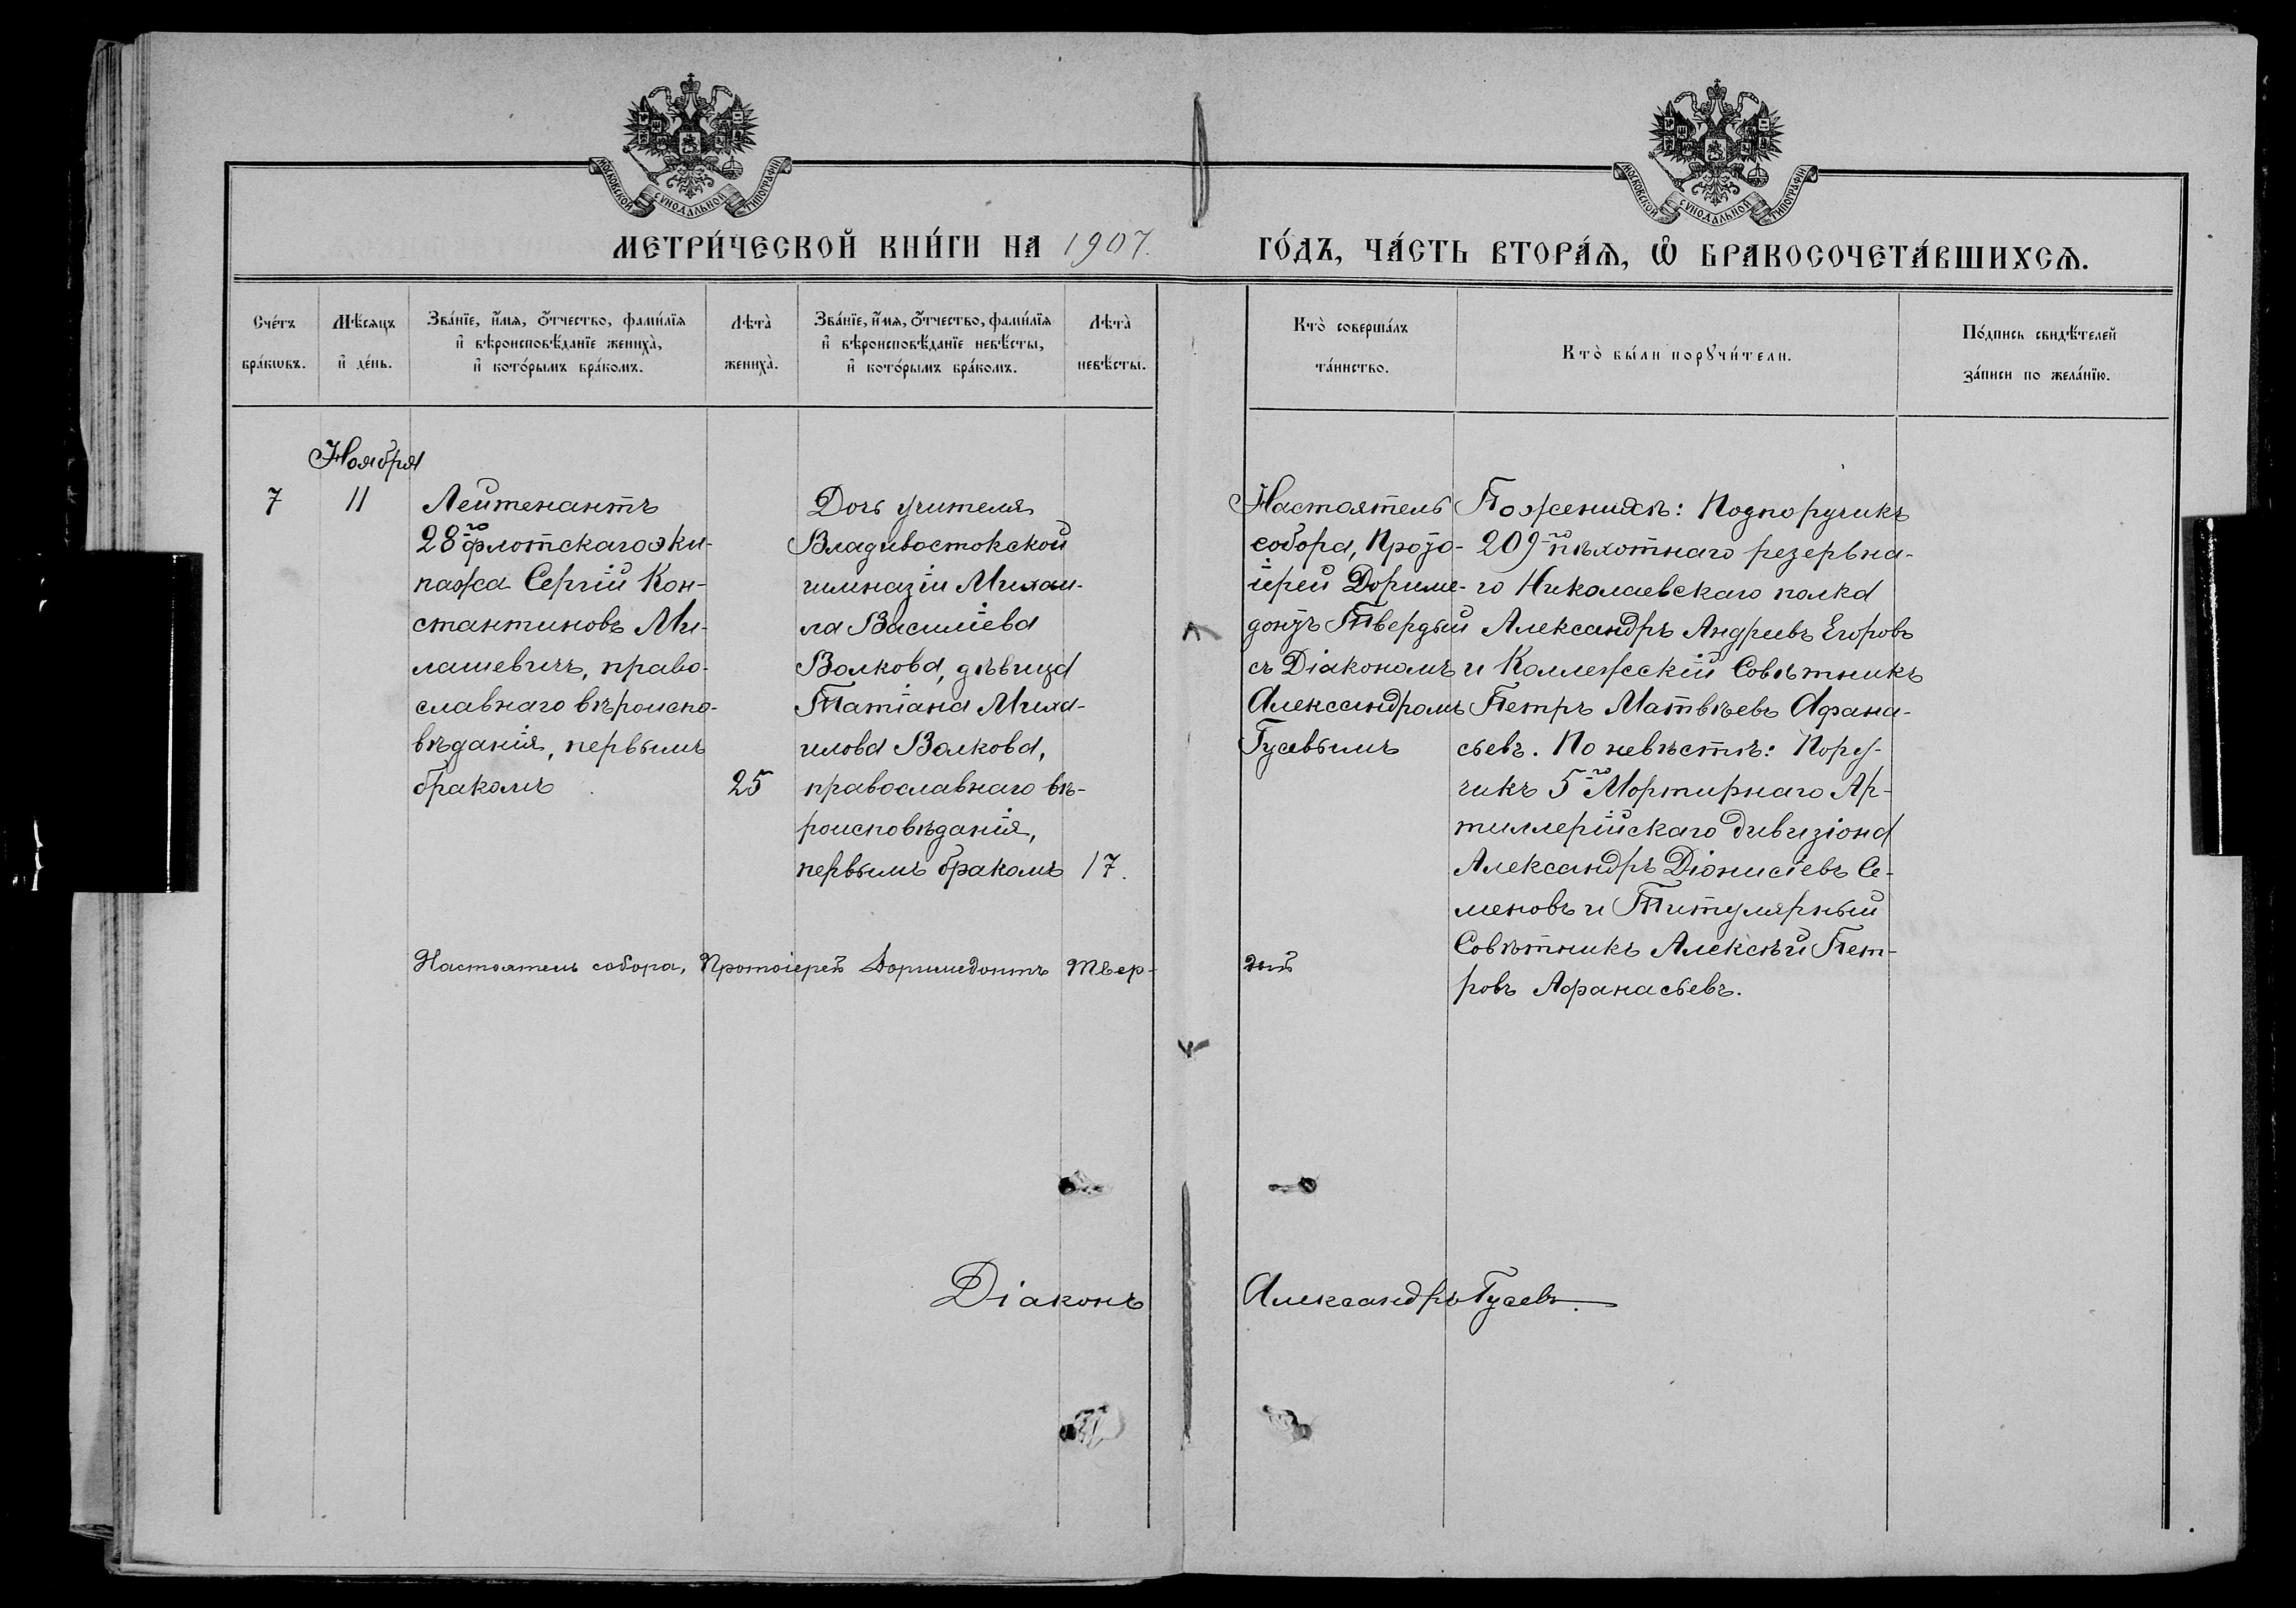 МОСКОВСКОЙ СѴНОДАЛЬНОЙ ТИПОГРАФІИ
МОСКОВСКОЙ СѴНОДАЛЬНОЙ ТИПОГРАФІИ
МЕТРИ́ЧЕСКОЙ КНИ́ГИ НА 1907.
ГО́ДЪ, ЧА́СТЬ ВТОРА́Ѧ, Ѡ҆ БРАКОСОЧЕТА́ВШИХСѦ.
Счéтъ
брáкѡвъ.
Мѣ́сяцъ
и҆ дéнь.
Звáнїе, и҆́мя, ѻ҆́тчество, фами́лїя
и҆ вѣроисповѣ́данїе женихà,
и҆ котóрымъ брáкомъ.
Лѣтà
женихà.
Звáнїе, и҆́мя, ѻ҆́тчество, фами́лїя
и҆ вѣроисповѣ́данїе невѣ́сты,
и҆ котóрымъ брáкомъ.
Лѣтà
невѣ́сты.
Ктò совершáлъ
тáинство.
Ктò бы́ли порꙋчи́тели.
Пóдпись свидѣ́телей
зáписи по желáнїю.
Ноября
7
11
Лейтенантъ
28го флотскаго эки-
пажа Сергій Кон-
стантиновъ Ми-
лашевичъ, право-
славнаго вѣроиспо-
вѣданія, первымъ
бракомъ
25
Дочь учителя
Владивостокской
гимназіи Михаи-
ла Василіева
Волкова, дѣвица
Татіана Михаи-
илова Волкова,
православнаго вѣ-
роисповѣданія,
первымъ бракомъ
17.
Настоятель
собора, Прото-
іерей Дориме-
донтъ Твердый
съ Діакономъ
Александромъ
Гусевымъ
По женихѣ: Подпоручикъ
209го пѣхотнаго резервна-
го Николаевскаго полка
Александръ Андреевъ Егоровъ
и Коллежскій Совѣтникъ
Петръ Матвѣевъ Афана-
сьевъ. По невѣстѣ: Пору-
чикъ 5го Мортирнаго Ар-
тиллерійскаго дивизіона
Александръ Діонисіевъ Се-
меновъ и Титулярный
Совѣтникъ Алексѣй Пет-
ровъ Афанасьевъ.
Настоятель собора, Протоіерей Доримедонтъ Твер-
дый
Діаконъ Александръ Гусевъ.